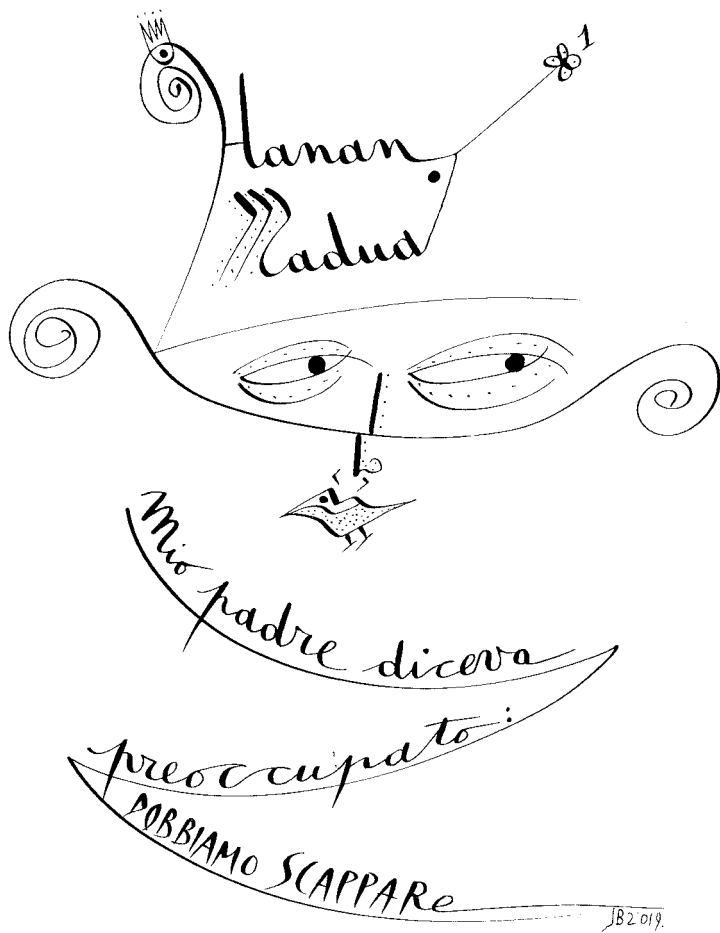 1
Hanan
Mio padre diceva
preoccupato:
DOBBIAMO SCAPPARe
JB2019.